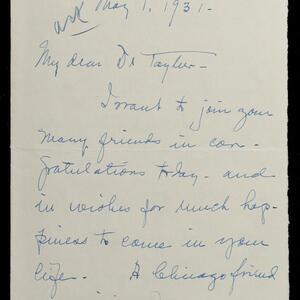 ack May 1, 1931.
My dear Dr Taylor -
I want to join your
many friends in con-
gratulations today - and
in wishes for much hap-
piness to come in your
life. - A Chicago friend